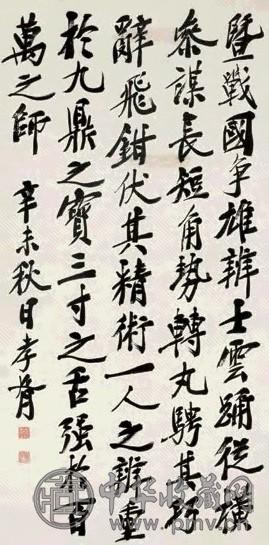 暨戰國争雄辨士雲踊從橫
參謀長短角勢轉丸騁其巧
辭飛鉗伏其精術一人之辨重
於九鼎之寶三寸之舌强於百
萬之師 辛未秋日孝胥
中华收藏网